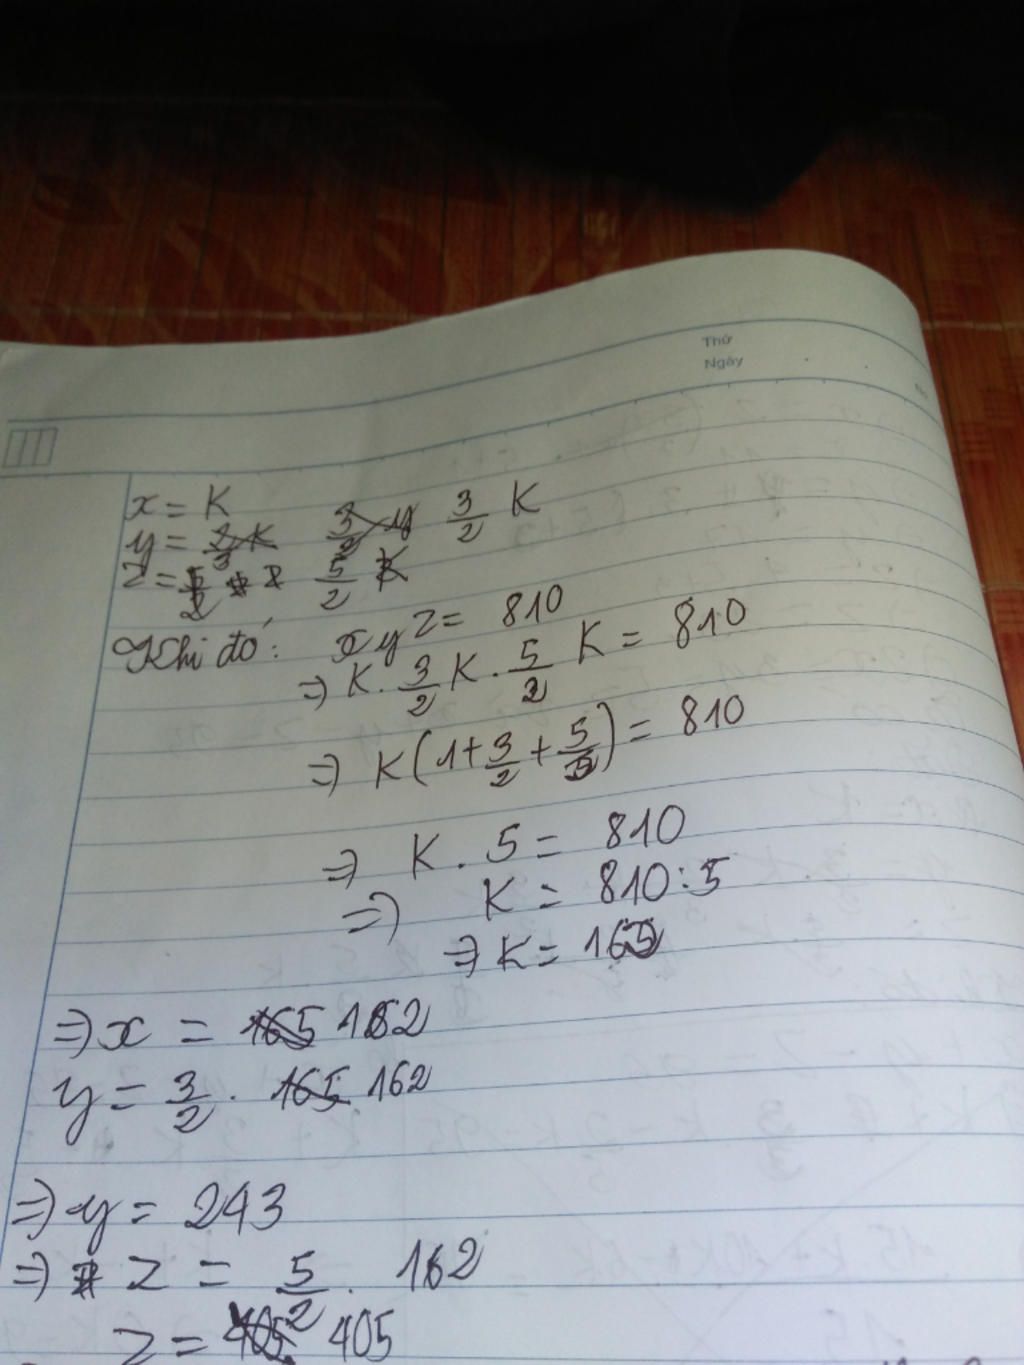 Thứ
Ngày
x = K
y = 3/2 K
z = 5/2 K
Khi đó: xyz = 810
=> K . 3/2 K . 5/2 K = 810
=> K(1 + 3/2 + 5/2) = 810
=> K . 5 = 810
=> K = 810 : 5
=> K = 162
=> x = 162
y = 3/2 . 162
=> y = 243
=> z = 5/2 . 162
z = 405